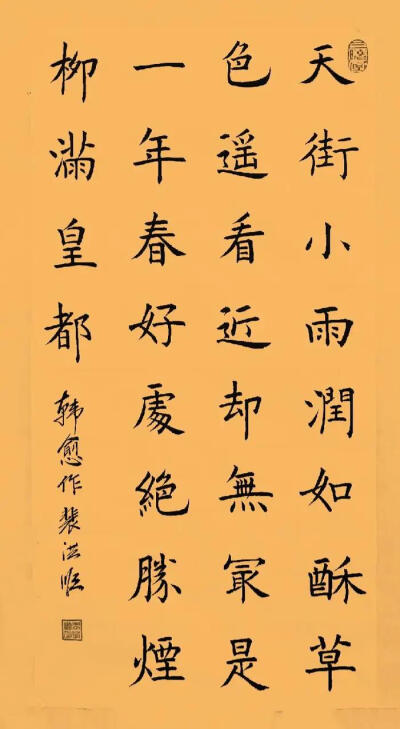 天街小雨潤如酥草
色遥看近却無冣是
一年春好處絕勝煙
柳滿皇都
韩愈作裴洪順